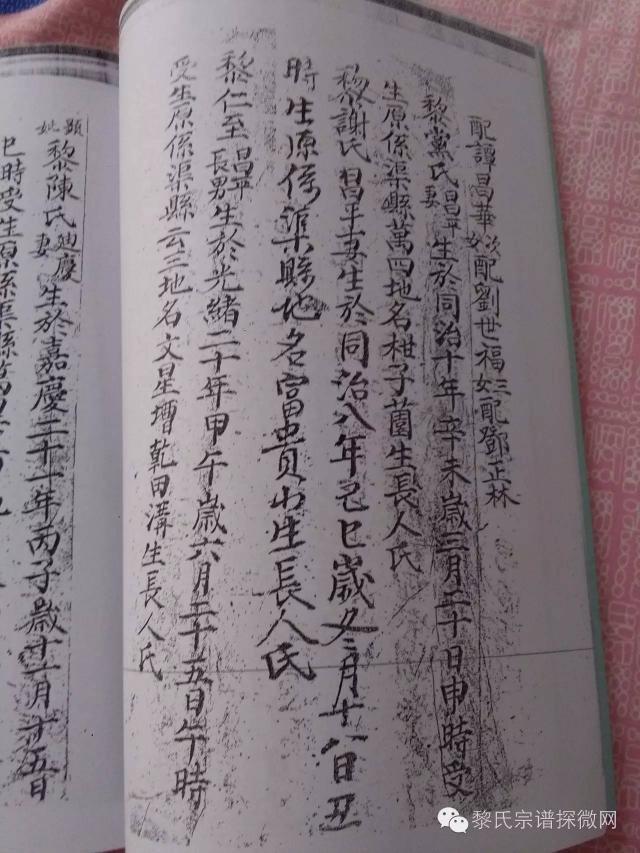 配譚昌華次女配劉世福三女配鄧正林
黎黨氏昌平妻生於同治十年辛未歲三月二十日申時受
生原係渠縣萬四地名柑子園生長人氏
黎謝氏昌平妻生於同治八年己巳歲又二月十八日丑
時生原係渠縣地名富貴山生長人氏
黎仁至昌平長男生於光緒二十年甲午歲六月二十五日午時
受生原係渠縣云三地名文星墖乾田溝生長人氏
顯妣黎陳氏廸慶妻生於嘉慶二十一年丙子歲十一月十五日
巳時受生原係渠縣萬
黎氏宗谱探微网